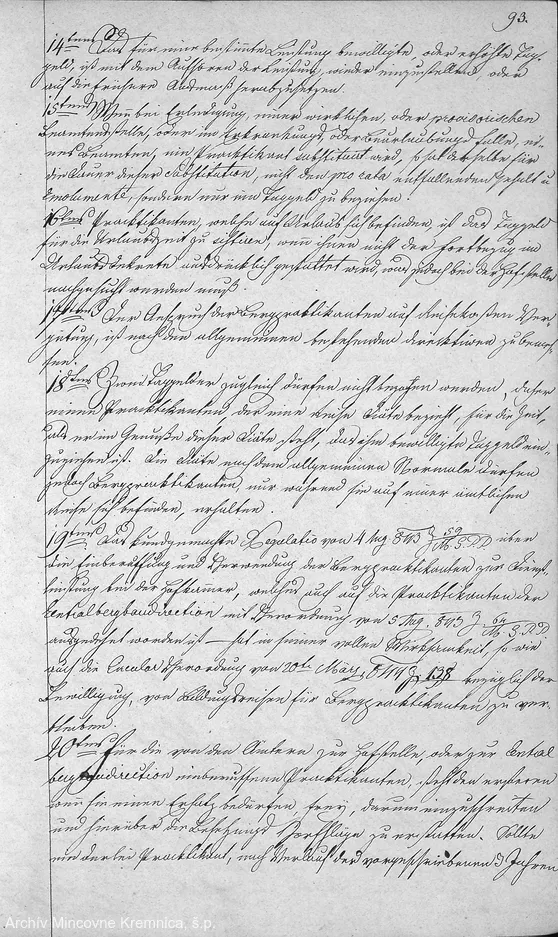 93.
14tens Das für eine bestimmte Leistung bewilligte oder erhöhte Tag-
geld, ist mit dem Aufhören der Leistung, wieder einzustellen, oder
auf die frühere Ausmaß herabzusetzen.
15tens Wenn bei Erledigung, einer wirklichen, oder provisorischen
Beamtenstelle, oder im Erkrankungs, oder Beurlaubungs Falle, ei-
nes Beamten, ein Practikant substituirt wird, so hat derselbe für
die Dauer dieser Substitution, nicht den pro rata entfallenden Gehalt u
Emolumente, sondern nur ein Taggeld zu beziehen.
16tens Practikanten, welche auf Urlaub sich befinden, ist das Taggeld
für die Urlaubszeit zu sistiren, wenn ihnen nicht der Fortbezug im
Urlaubsdekrete ausdrücklich gestattet wird, was jedoch bei der Hofstelle
nachgesucht werden muß.
17tens Der Anspruch der Bergpraktikanten auf Reisekosten Ver-
gütung, ist nach den allgemeinen bestehenden Direktiven zu bemes-
sen.
18tens Zwei Taggelder zugleich dürfen nicht bezogen werden, daher
einem Practikanten der eine Reise Diäte bezieht, für die Zeit,
als er im Genuße dieser Diäte steht, das ihm bewilligte Taggeld ein-
zuziehen ist. Die Diäte nach dem allgemeinen Normale dürfen
jedoch Bergpracktikanten, nur während sie auf einer amtlichen
Reise sich befinden, erhalten.
19tens Das kundgemachte Regulativ von 4 Aug 843 Z 59/M.S.P.D über
die Einberuffung und Verwendung der Bergpracktikanten zur Dienst-
leistung bei der Hofkammer, welches auch auf die Practikanten der
Centralbergbaudirection mit Verordnung von 5 Aug. 843 Z
ausgedehnt worden ist – hat in seiner vollen Wirksamkeit, so wie
auch die Circular Verordnung von 20ten März 844 Z 138 bezüglich der
Bewilligung, von Bildungsreisen für Bergpracktikanten zu ver-
bleiben.
20tens Für die von den Ämtern zur Hofstelle, oder zur Central
bergbaudirection einberuffenen Practikanten, steht den ersteren
wenn sie einen Ersatz bedürfen frei, darum einzuschreiten
und hierüber die Besetzungs Vorschläge zu erstatten. Sollte
ein derlei Practikant, nach Verlauf der vorgeschriebenen 3 Jahren
Archív Mincovne Kremnica, š.p.